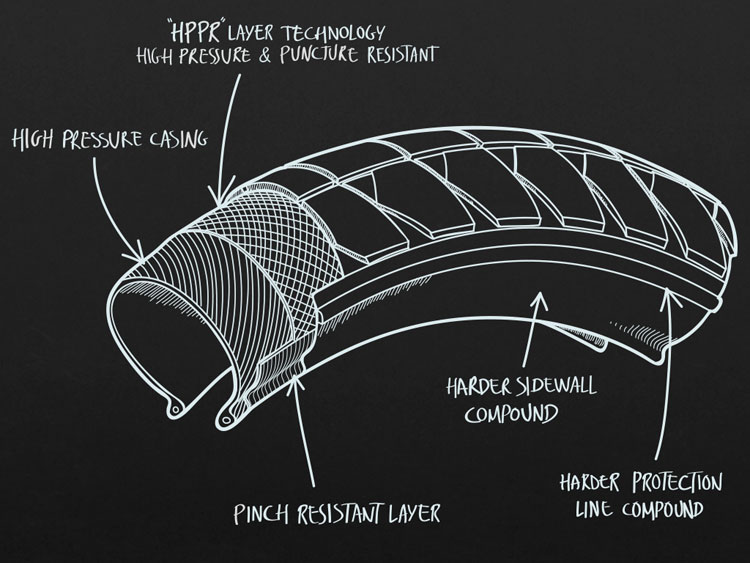 "HPPR" LAYER TECHNOLOGY
HIGH PRESSURE & PUNCTURE RESISTANT
HIGH PRESSURE CASING
HARDER SIDEWALL
COMPOUND
HARDER PROTECTION
LINE COMPOUND
PINCH RESISTANT LAYER